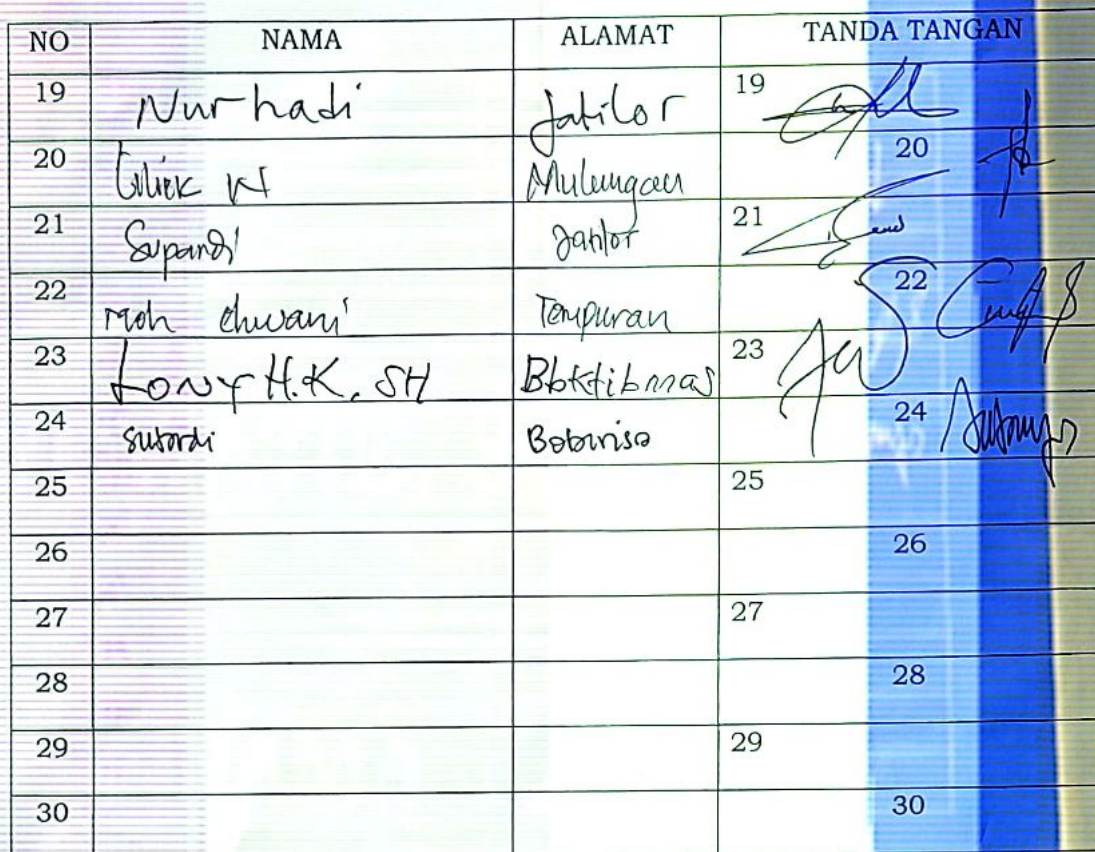 NO NAMA ALAMAT TANDA TANGAN
19 Nurhadi Jatilor 19
20 Mulungan 20
21 Supandi Jatilor 21
22 Moh Tempuran 22
23 Tony H.K. SH 23
24 Sutardi 24
25 25
26 26
27 27
28 28
29 29
30 30